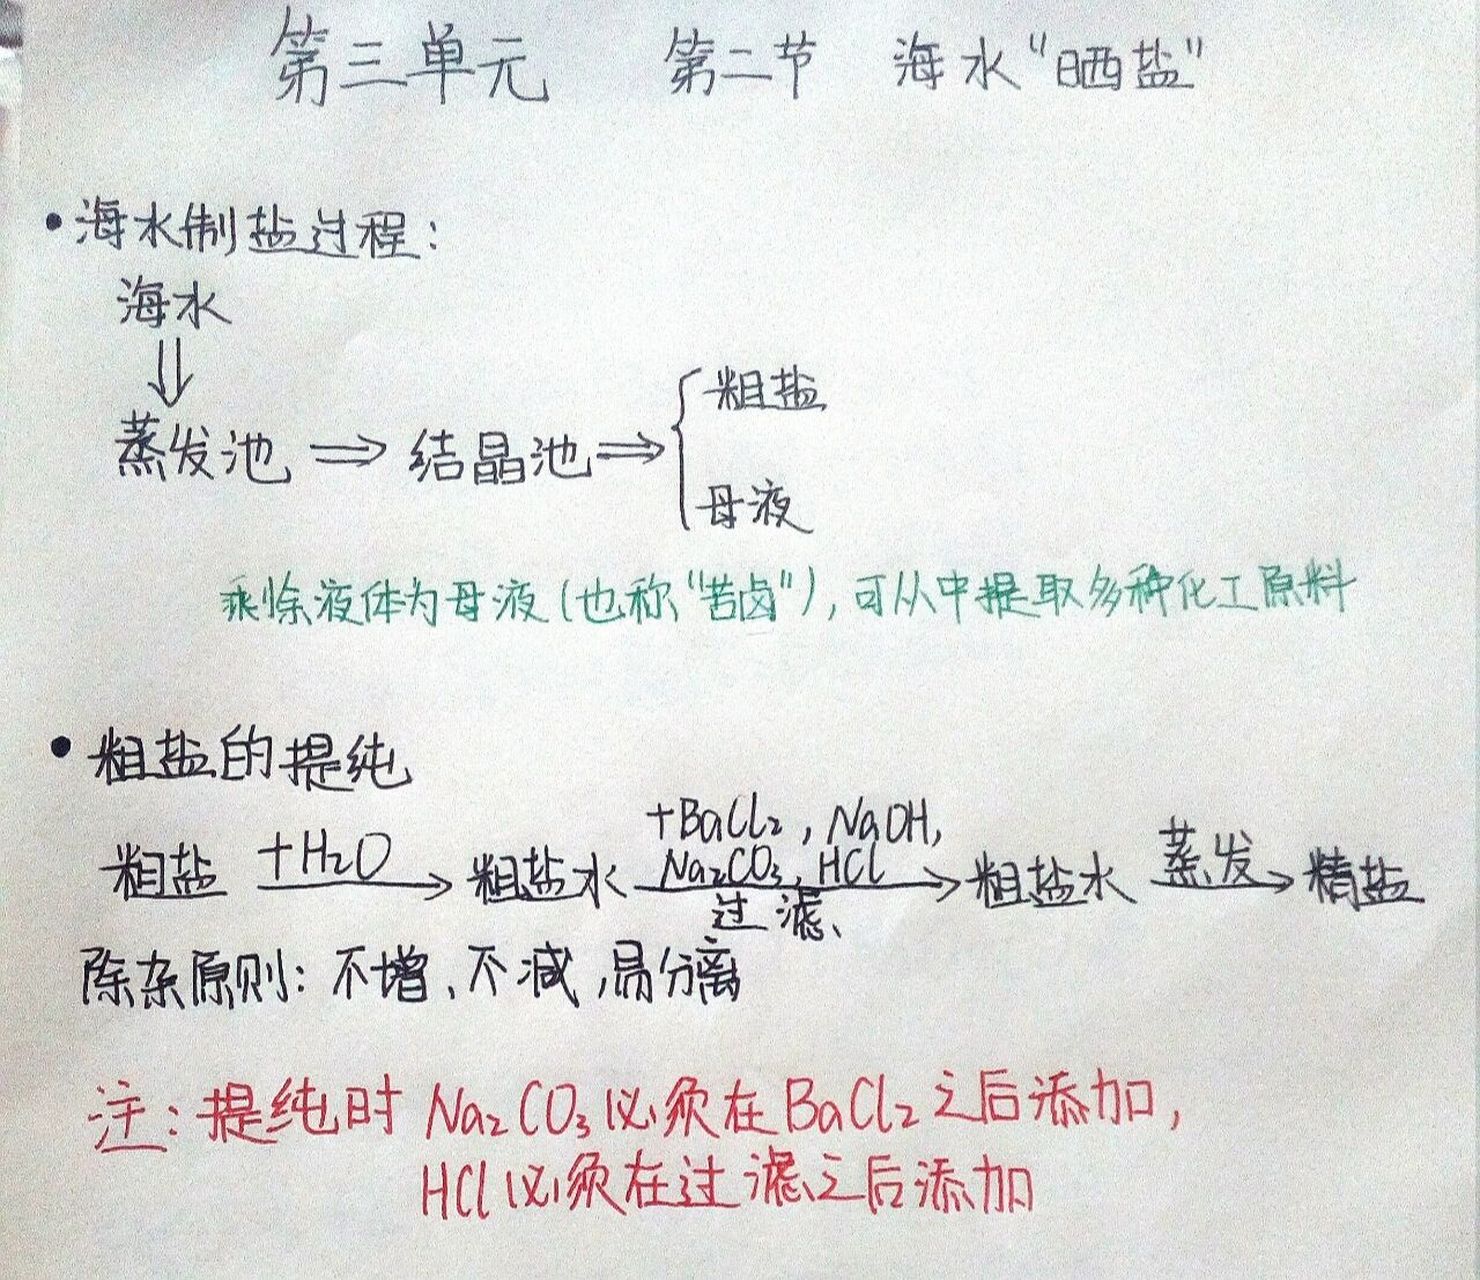 第三单元 第二节 海水“晒盐”
•海水制盐过程：
海水
⇓
蒸发池 ⇒ 结晶池 ⇒ { 粗盐
母液
乘馀液体为母液(也称“苦卤”)，可从中提取多种化工原料
•粗盐的提纯
+BaCl₂，NaOH，
粗盐 +H₂O → 粗盐水 Na₂CO₃、HCl → 粗盐水 蒸发 → 精盐
过滤、
除杂原则：不增、不减，易分离
注：提纯时 Na₂CO₃必须在BaCl₂之后添加，
HCl必须在过滤之后添加